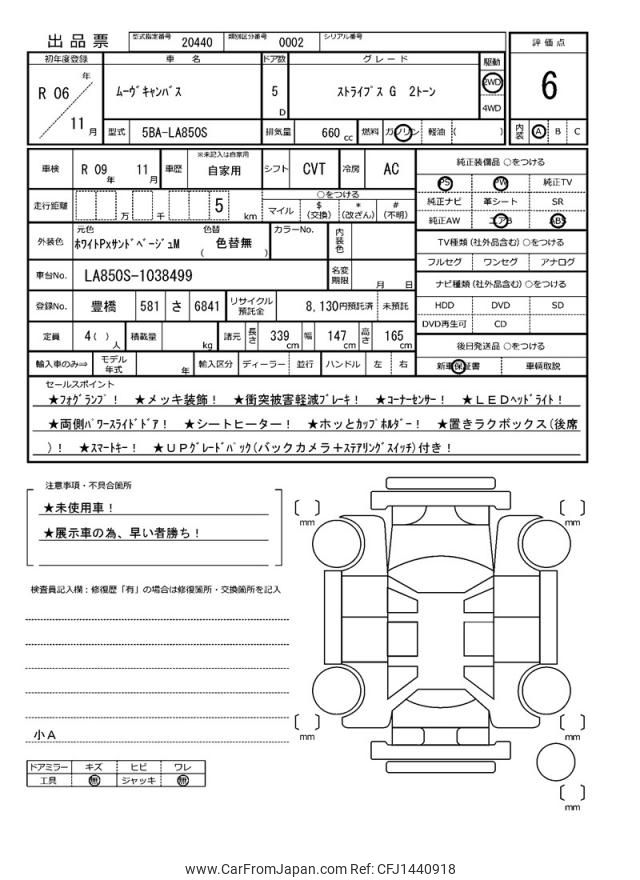 出品票 型式指定番号 20440 類別区分番号 0002 シリアル番号
評価点
6
内装 A B C
初年度登録 車名 ドア数 グレード 駆動
R 06 年 11 月
ムーヴキャンバス
5 D
ストライプス G 2トーン
2WD
4WD
型式 5BA-LA850S 排気量 660 cc 燃料 ガソリン 軽油 ( )
車検 R 09 年 11 月 車歴 ※未記入は自家用 自家用 シフト CVT 冷房 AC
走行距離 万 千 5 km
○をつける
マイル $ (交換) * (改ざん) # (不明)
外装色 元色 ホワイトPxサンドベージュM 色替 ( 色替無 ) カラーNo. 内装色
車台No. LA850S-1038499 名変期限 月 日
登録No. 豊橋 581 さ 6841 リサイクル預託金 8,130円預託済 未預託
定員 4( )人 積載量 kg 諸元 長さ 339 cm 幅 147 cm 高さ 165 cm
輸入車のみ⇒ モデル年式 年 輸入区分 ディーラー 並行 ハンドル 左 右
純正装備品 ○をつける
PS PW 純正TV
純正ナビ 革シート SR
純正AW エアB ABS
TV種類(社外品含む)○をつける
フルセグ ワンセグ アナログ
ナビ種類(社外品含む)○をつける
HDD DVD SD
DVD再生可 CD
後日発送品 ○をつける
新車保証書 車輌取説
セールスポイント
★フォグランプ! ★メッキ装飾! ★衝突被害軽減ブレーキ! ★コーナーセンサー! ★LEDヘッドライト!
★両側パワースライドドア! ★シートヒーター! ★ホッとカップホルダー! ★置きラクボックス(後席
)! ★スマートキー! ★UPグレードパック(バックカメラ+ステアリングスイッチ)付き!
注意事項・不具合箇所
★未使用車!
★展示車の為、早い者勝ち!
検査員記入欄:修復歴「有」の場合は修復箇所・交換箇所を記入
小A
ドアミラー キズ ヒビ ワレ
工具 無 ジャッキ 無
[ ] mm
[ ] mm
[ ] mm
[ ] mm
[ ] mm
www.CarFromJapan.com Ref: CFJ1440918